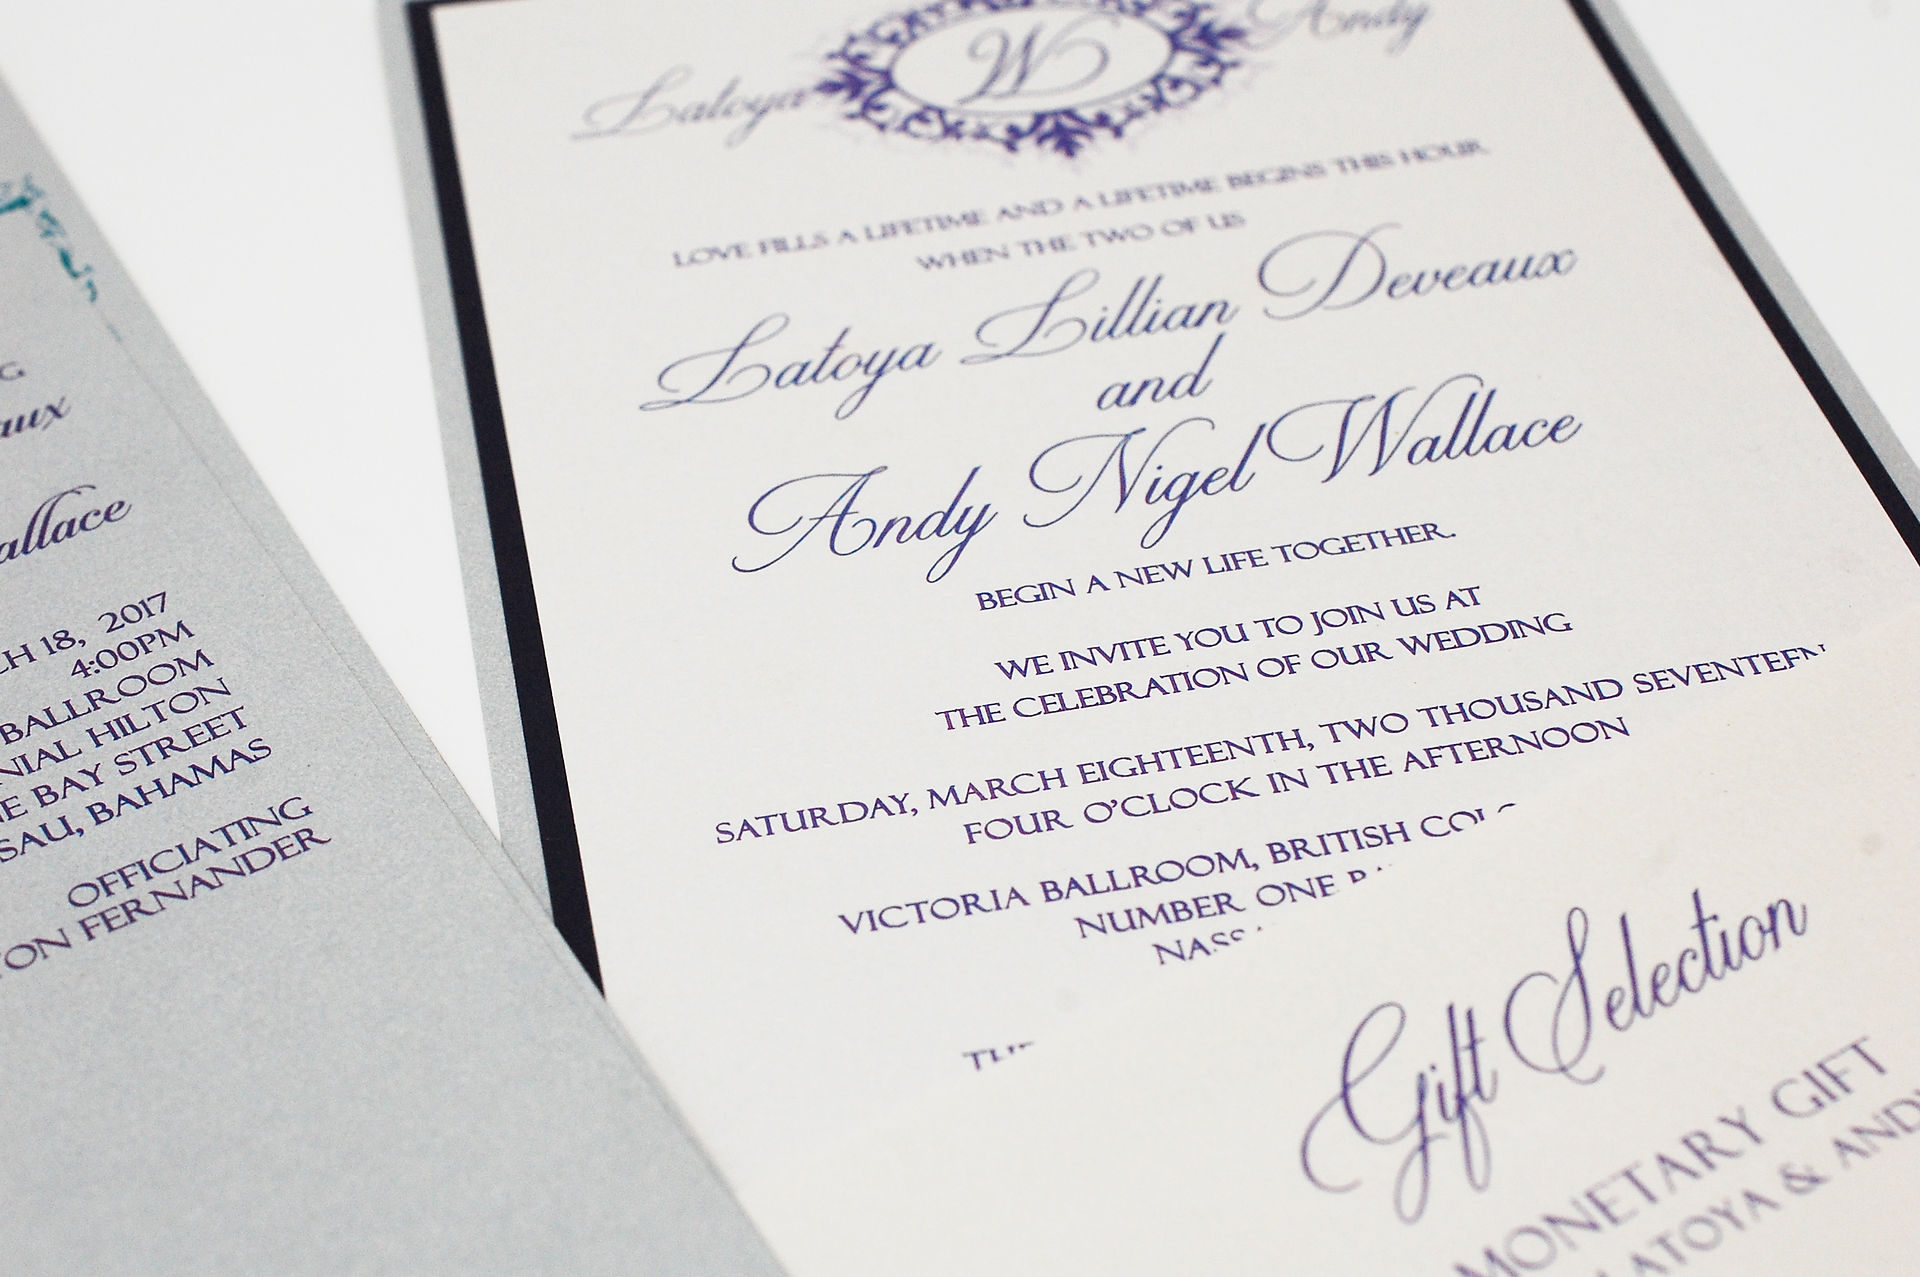 G
aux
allace
CH 18, 2017
4:00PM
BALLROOM
NIAL HILTON
E BAY STREET
SAU, BAHAMAS
OFFICIATING
ON FERNANDER
Latoya W Andy
LOVE FILLS A LIFETIME AND A LIFETIME BEGINS THIS HOUR
WHEN THE TWO OF US
Latoya Lillian Deveaux
and
Andy Nigel Wallace
BEGIN A NEW LIFE TOGETHER.
WE INVITE YOU TO JOIN US AT
THE CELEBRATION OF OUR WEDDING
SATURDAY, MARCH EIGHTEENTH, TWO THOUSAND SEVENTEEN
FOUR O'CLOCK IN THE AFTERNOON
VICTORIA BALLROOM, BRITISH COL
NUMBER ONE
NASS
Gift Selection
MONETARY GIFT
LATOYA & AND